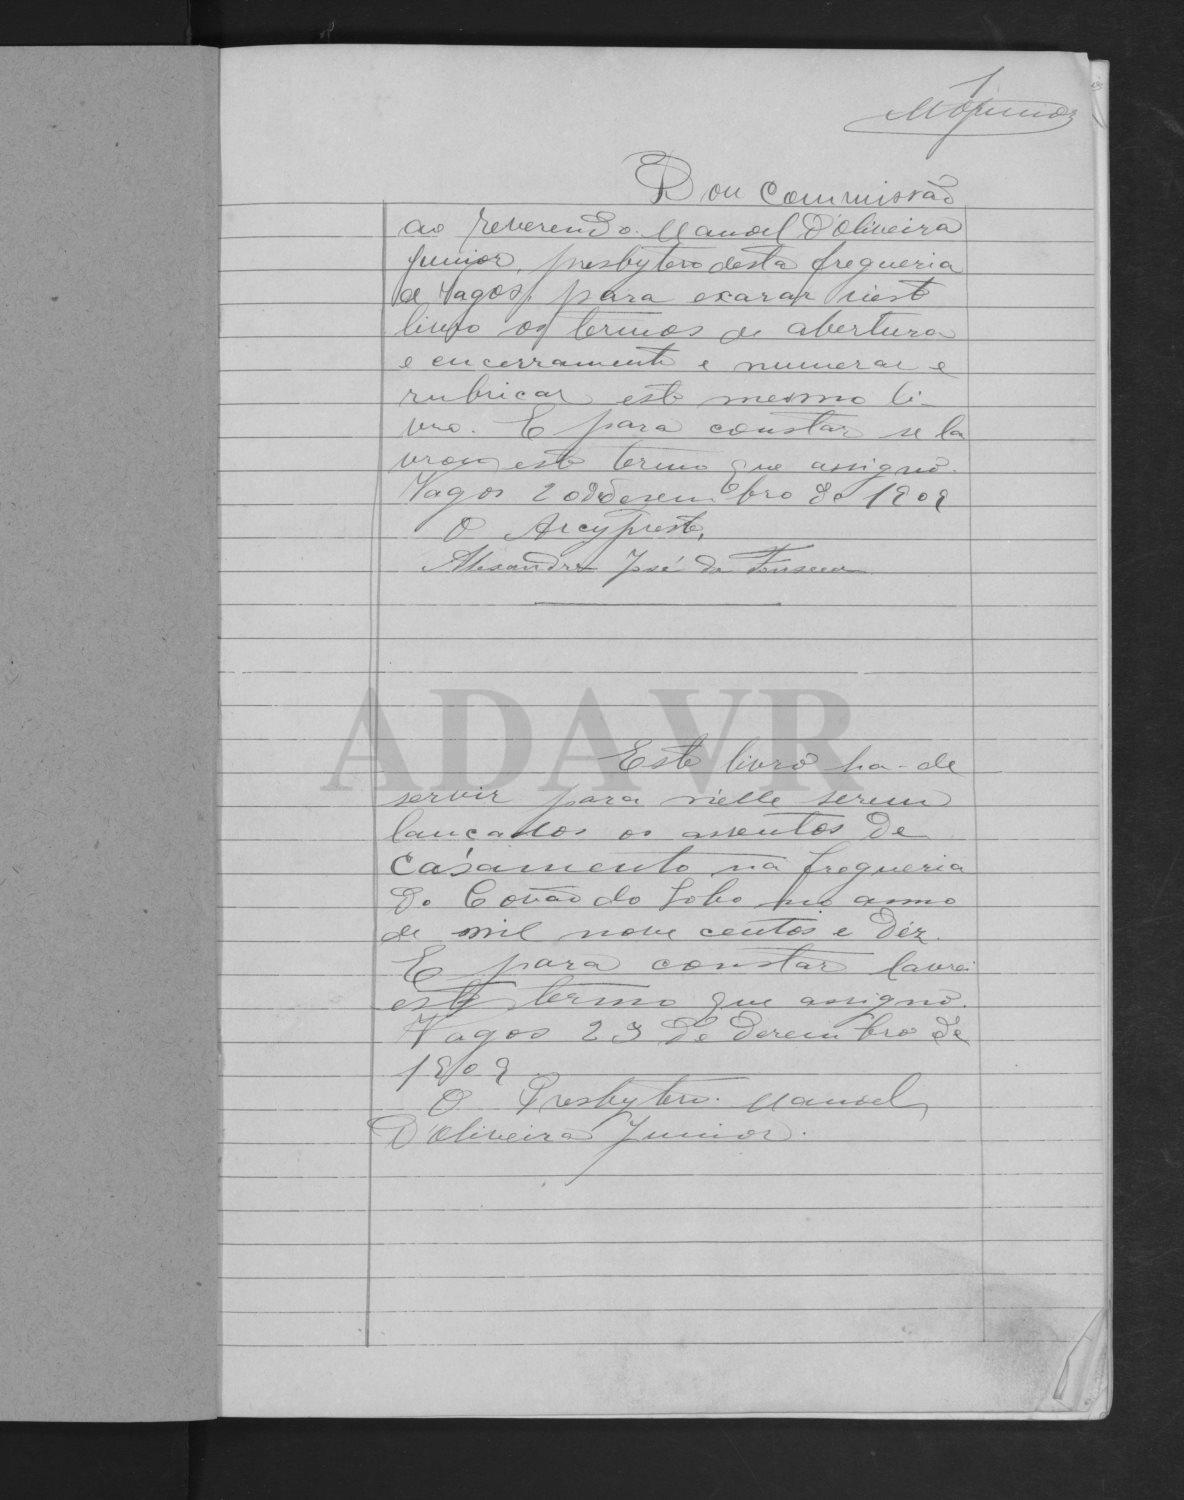 1
MOJunior
Dou Commissão
ao reverendo Manoel D'Oliveira
Junior, presbytero desta freguesia
de Vagos, para exarar neste
livro os termos de abertura
e encerramento e numerar e
rubricar este mesmo li-
vro. E para constar se la
vrou este termo que assigno.
Vagos 20 de desembro de 1909
O Arcypreste,
Alexandre José da Fonseca
ADAVR
Este livro ha-de
servir para nelle serem
lançados os assentos de
casamento na freguesia
do Covão do Lobo no anno
de mil nove centos e déz.
E para constar lavrei
este termo que assigno.
Vagos 23 de Desembro de
1909
O Presbytero. Manoel
D'Oliveira Junior.